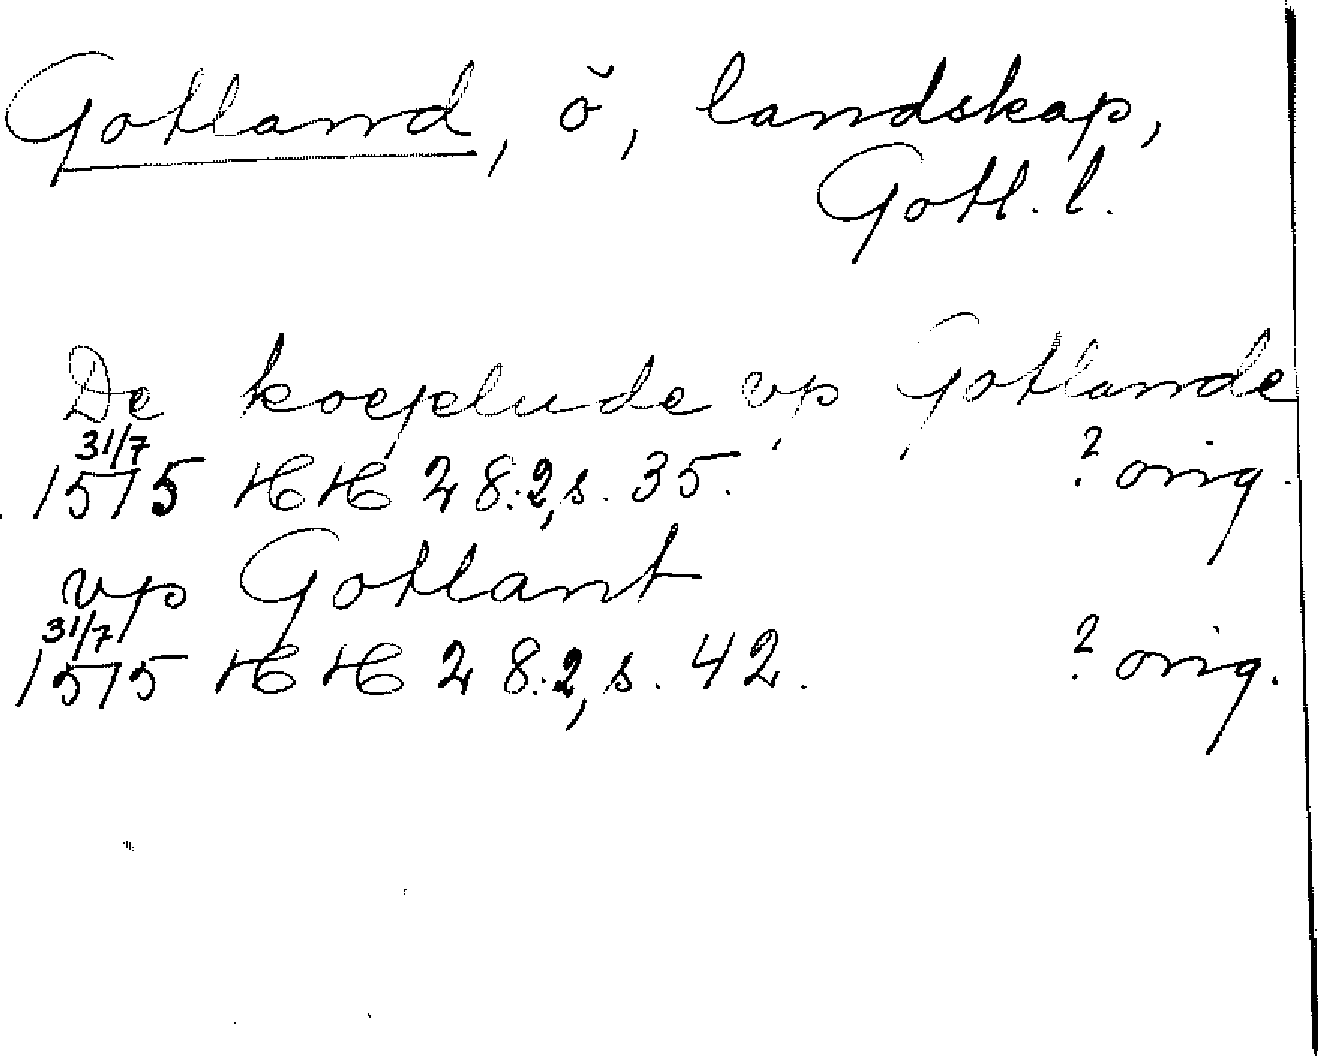 Gotland, ö, landskap,
Gotl. l.
De koepelude vp Gotlande
31/7
1575 HH 28:2, s. 35. ? orig.
vp Gotlant
31/7
1575 HH 28:2, s. 42. ? orig.